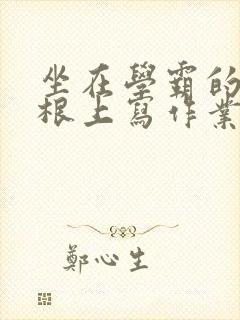 坐在學霸的
根上寫作業
鄭心生